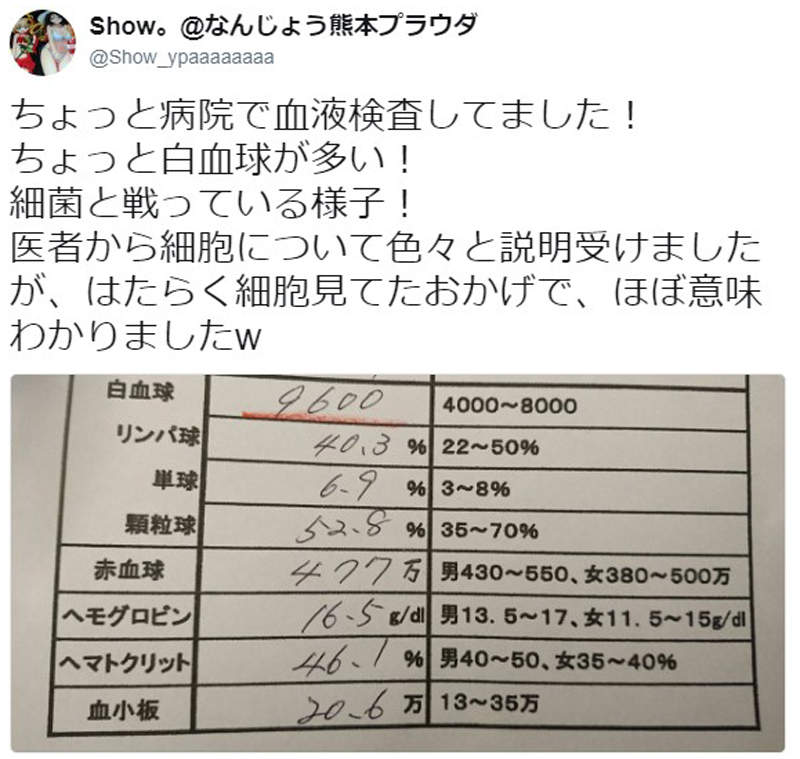 Show。@なんじょう熊本プラウダ
@Show_ypaaaaaaaa
ちょっと病院で血液検査してました！
ちょっと白血球が多い！
細菌と戦っている様子！
医者から細胞について色々と説明受けました
が、はたらく細胞見てたおかげで、ほぼ意味
わかりましたw
白血球 9600 4000～8000
リンパ球 40.3 % 22～50%
単球 6.9 % 3～8%
顆粒球 52.8 % 35～70%
赤血球 477 万 男430～550、女380～500万
ヘモグロビン 16.5 g/dl 男13.5～17、女11.5～15g/dl
ヘマトクリット 46.1 % 男40～50、女35～40%
血小板 20.6 万 13～35万